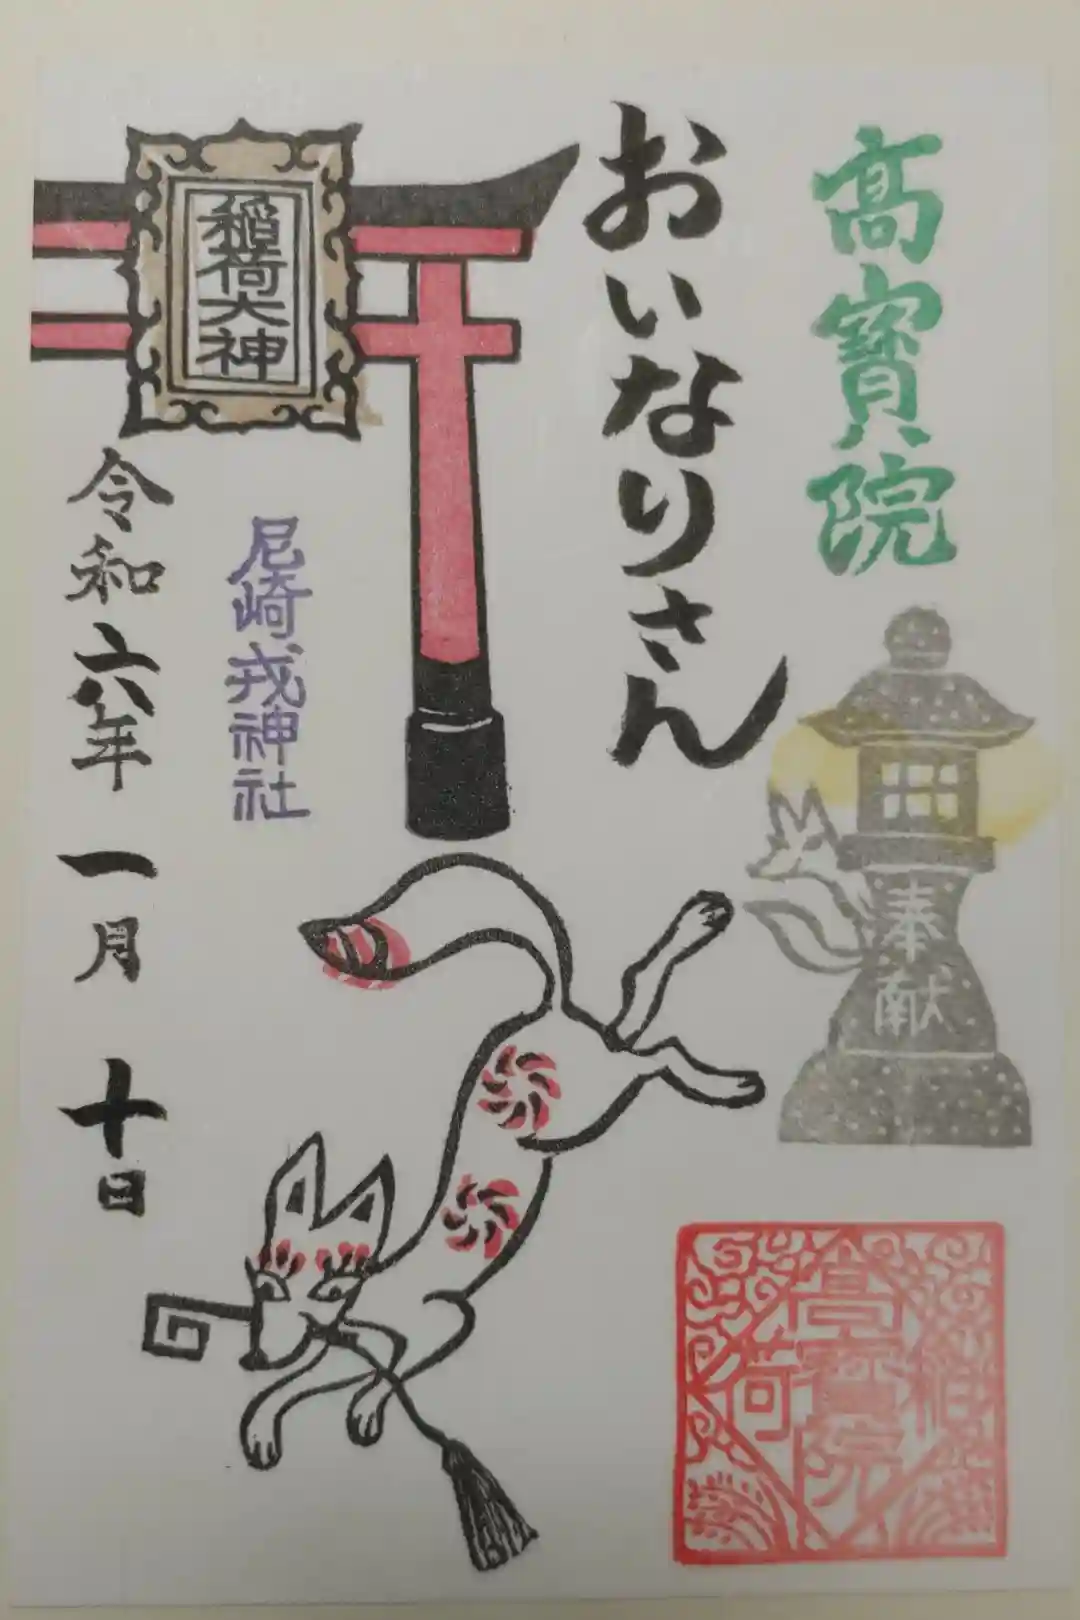 高寳院
おいなりさん
稲荷大神
奉献
尼崎戎神社
令和六年一月十日
稲荷
高寳院